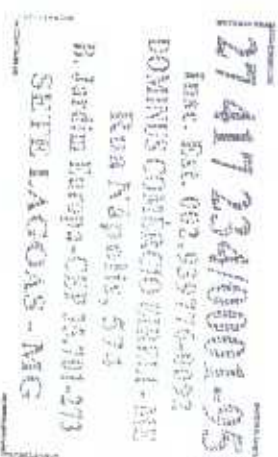 27 417 234/0001-95
Insc. Est. 002.939776-0092
DOMINUS COMÉRCIO EIRELI - ME
Rua Nápoles, 574
B. Jardim Europa-CEP 35.701-273
SETE LAGOAS - MG